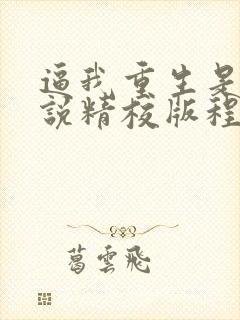 逼我重生是
說精校版程
葛雲飛